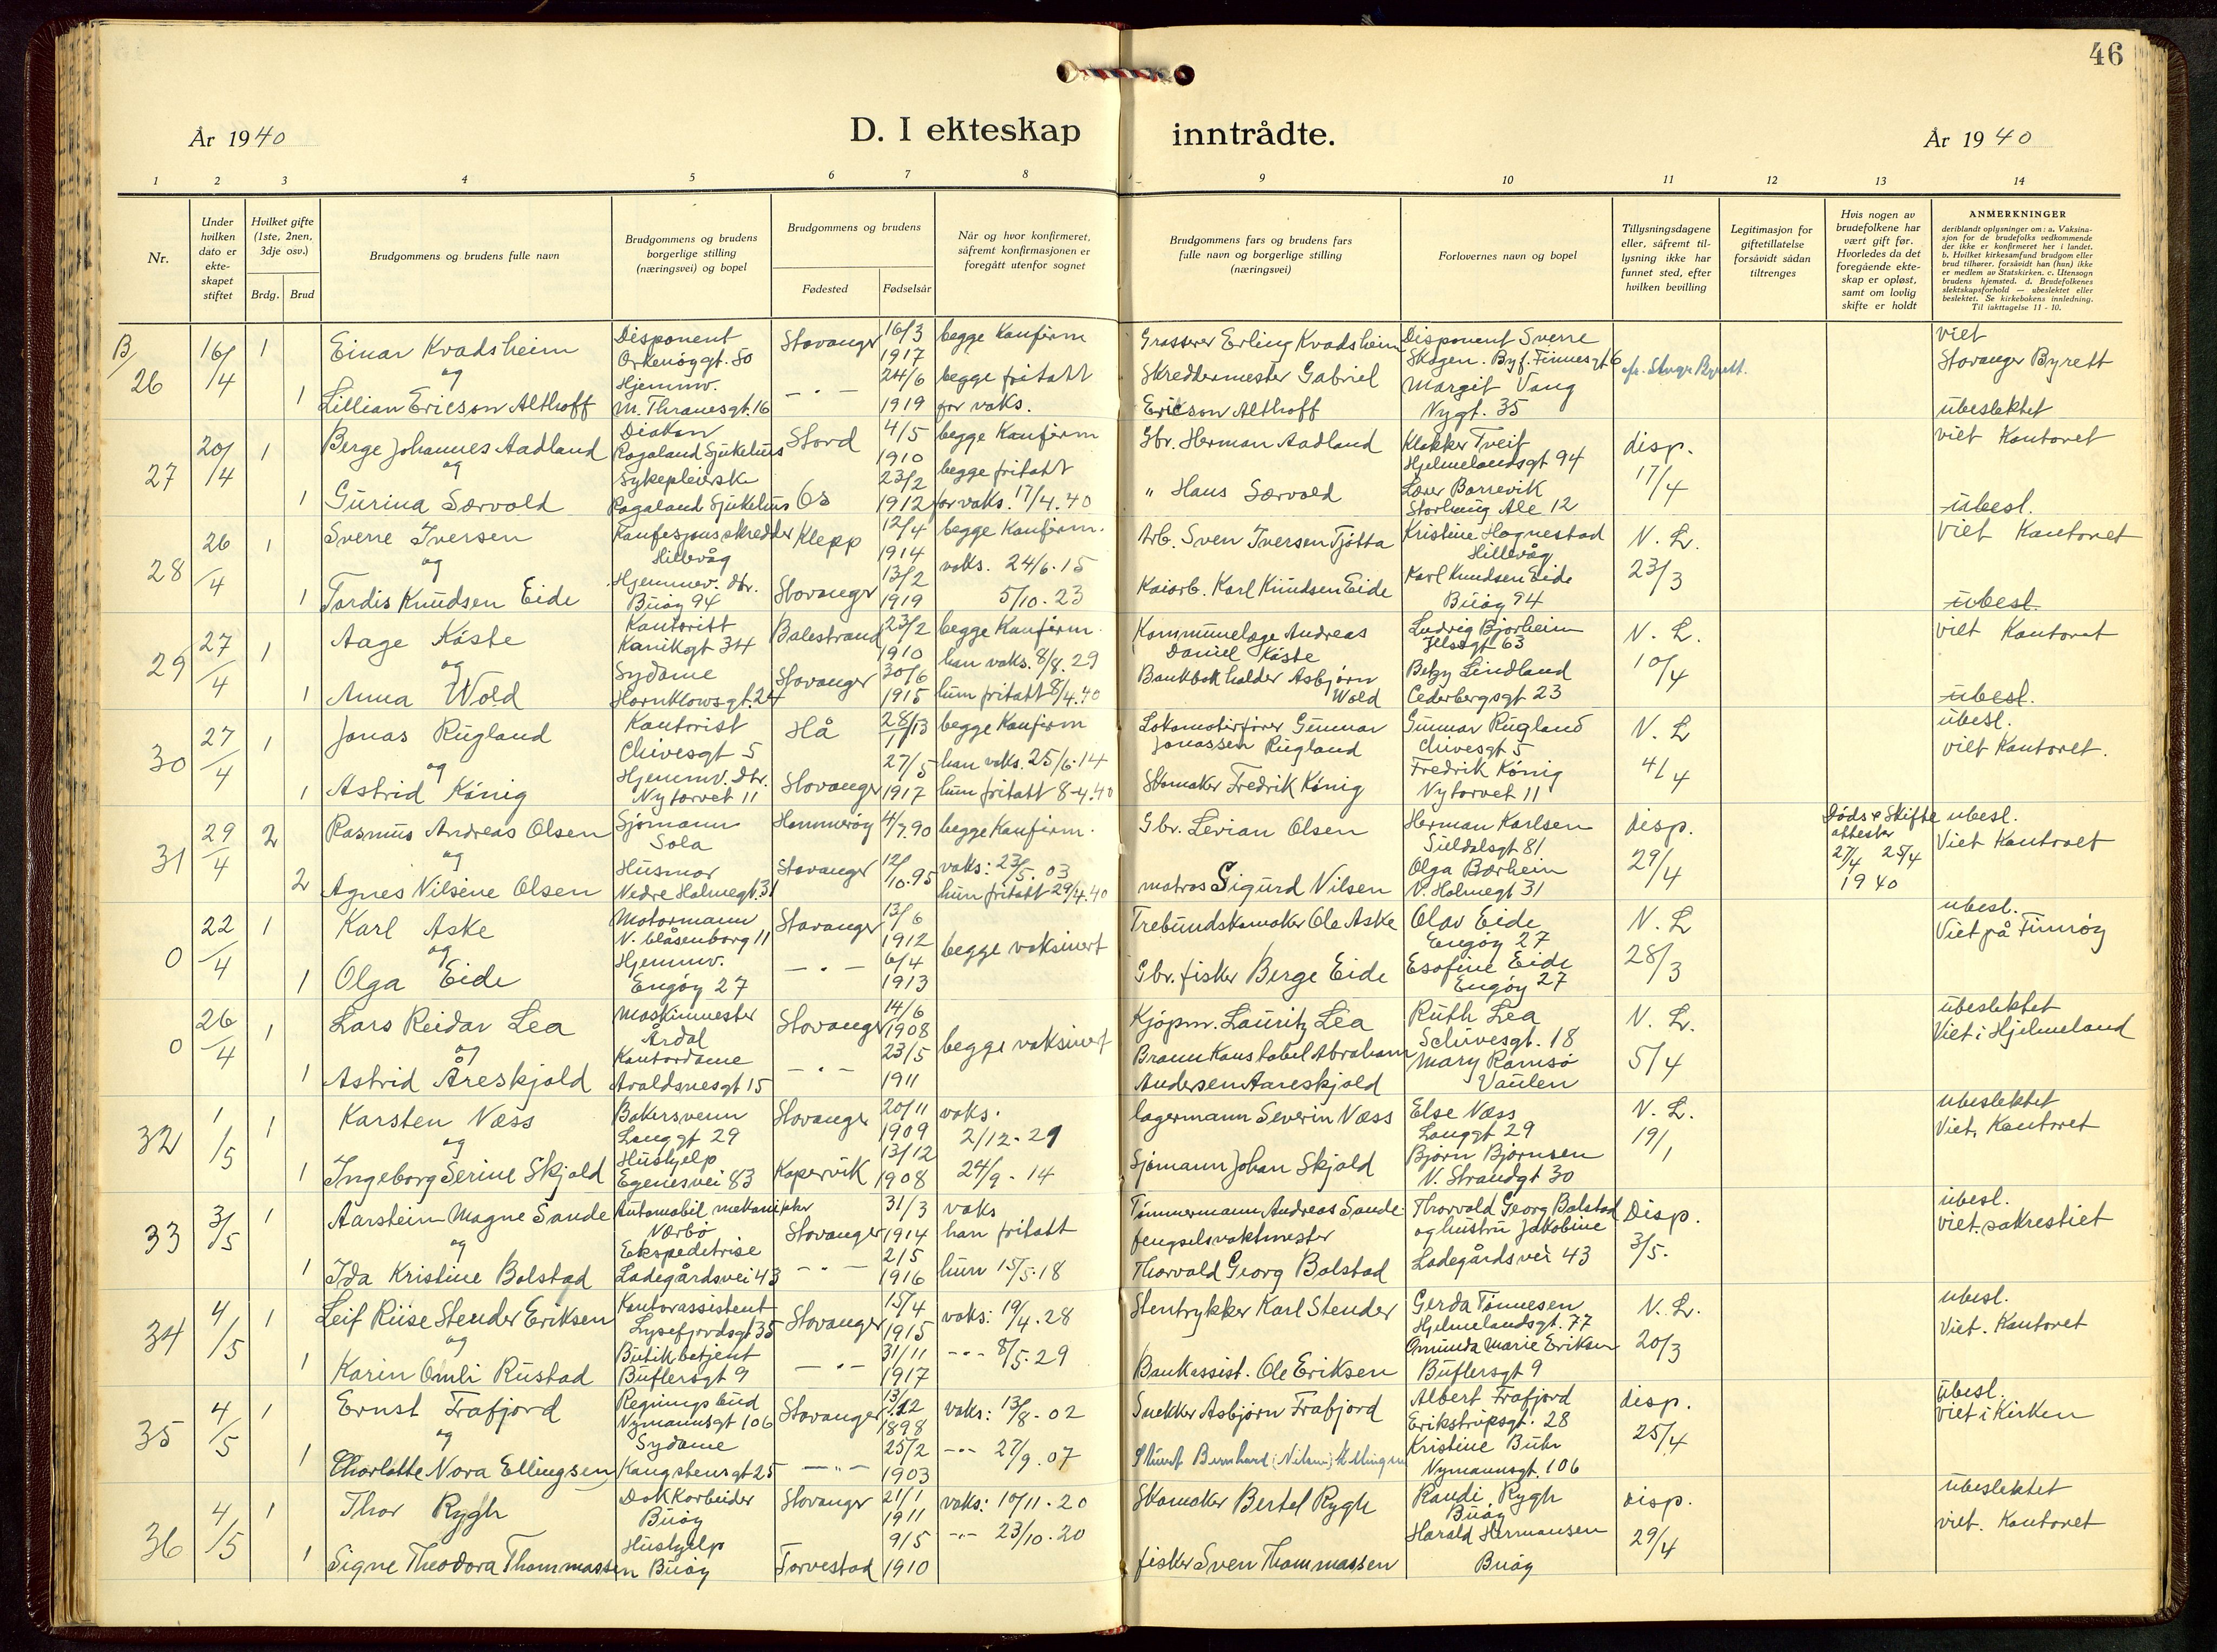 46
År 1940
D. I ekteskap inntrådte.
År 1940
1 2 3 4 5 6 7 8 9 10 11 12 13 14
Nr.
Under hvilken dato er ekteskapet stiftet
Hvilket gifte (1ste, 2nen, 3dje osv.)
Brdg.
Brud
Brudgommens og brudens fulle navn
Brudgommens og brudens borgerlige stilling (næringsvei) og bopel
Brudgommens og brudens
Fødested
Fødselsår
Når og hvor konfirmeret, såfremt konfirmasjonen er foregått utenfor sognet
Brudgommens fars og brudens fars fulle navn og borgerlige stilling (næringsvei)
Forlovernes navn og bopel
Tillysningsdagene eller, såfremt tillysning ikke har funnet sted, efter hvilken bevilling
Legitimasjon for giftetillatelse forsåvidt sådan tiltrenges
Hvis nogen av brudefolkene har vært gift før. Hvorledes da det foregående ekteskap er opløst, samt om lovlig skifte er holdt
ANMERKNINGER
deriblandt oplysninger om: a. Vaksinasjon for de brudefolks vedkommende der ikke er konfirmeret her i landet. b. Hvilket kirkesamfund brudgom eller brud tilhører, forsåvidt han (hun) ikke er medlem av Statskirken. c. Utensogn brudens hjemsted. d. Brudefolkenes slektskapsforhold — ubeslektet eller beslektet. Se kirkebokens innledning. Til iakttagelse 11 - 10.
B/ 26
16/4 1
Einar Kvadsheim
og
1 Lillian Ericson Althoff
Disponent
Orkenøygt. 50
Hjemmv.
M. Thranesgt. 16
Stavanger
— " —
16/3 1917
24/6 1919
begge Konfirm
begge fritatt
for vaks.
Grosserer Erling Kvadsheim
Skreddermester Gabriel
Ericson Althoff
Disponent Sverre
Skogen. Byf. Finnesgt 6
Margit Vang
Nygt. 35
viet
Stavanger Byrett
ubeslektet
27
20/4 1
Berge Johannes Aadland
og
1 Gurina Særvold
Diakon
Rogaland Sjukehus
Sykepleierske
Rogaland Sjukehus
Stord
Os
4/5 1910
23/2 1912
begge Konfirm
begge fritatt
for vaks. 17/4.40
Gbr. Herman Aadland
" Hans Særvold
Klokker Tveit
Hjelmelandsgt 94
Lærer Barrevik
Storhaug Ale 12
disp.
17/4
viet Kontoret
ubesl.
28
26/4 1
Sverre Iversen
og
1 Tordis Knudsen Eide
Konfesjonsskredder
Hillevåg
Hjemmev. dtr.
Buøy 94
Klepp
Stavanger
12/4 1914
13/2 1919
begge Konfirm.
vaks. 24/6.15
5/10.23
Arb. Sven Iversen Tjøtta
Kaiarb. Karl Knudsen Eide
Kristine Hognestad
Hillevåg
Karl Knudsen Eide
Buøy 94
N. L.
23/3
Viet Kontoret
ubesl.
29
27/4 1
Aage Kåste
og
1 Anna Wold
Kontorist
Kanikgt 34
Sydame
Hornklowsgt. 24
Balestrand
Stavanger
23/2 1910
30/6 1915
begge Konfirm.
han vaks. 8/8.29
hun fritatt 8/4.40
Kommunelæge Andreas
Daniel Kåste
Bankbokholder Asbjørn
Wold
Ludvig Bjorheim
Jelsagt 63
Betzy Lindland
Cederbergsgt 23
N. L.
10/4
viet Kontoret
ubesl.
30
27/4 1
Jonas Rugland
og
1 Astrid König
Kontorist
Chivesgt 5
Hjemmv. dtr.
Nytorvet 11
Hå
Stavanger
28/1 13
27/5 1917
begge Konfirm
han vaks. 25/6.14
hun fritatt 8-4.40
Lokomotivfører Gunnar
Jonassen Rugland
Skomaker Fredrik König
Gunnar Rugland
Chivesgt 5
Fredrik König
Nytorvet 11
N. L
4/4
ubesl.
viet Kontoret.
31
29/4 2
Rasmus Andreas Olsen
og
2 Agnes Nilsine Olsen
Sjømann
Sola
Husmor
Nedre Holmegt. 31
Hommerøy
Stavanger
4/7.90
12/10.95
begge Konfirm.
vaks: 23/5.03
hun fritatt 29/4.40
Gbr. Levian Olsen
matros Sigurd Nilsen
Herman Karlsen
Suldalsgt 81
Olga Barheim
N. Holmegt 31
disp.
29/4
Døds & Skifte
attester
27/4 25/4
1940
ubesl.
Viet Kontoret
0
22/4 1
Karl Aske
og
1 Olga Eide
Motormann
N. blåsenborg 11
Hjemmv.
Engøy 27
Stavanger
— " —
13/6 1912
6/4 1913
begge vaksinert
Trebundskomaker Ole Aske
Gbr. fisker Berge Eide
Olav Eide
Engøy 27
Esofine Eide
Engøy 27
N. L
28/3
ubesl.
Viet på Finnøy
0
26/4 1
Lars Reidar Lea
og
1 Astrid Åreskjold
Maskinmester
Årdal
Kontordame
Avaldsnesgt 15
Stavanger
— " —
14/6 1908
23/5 1911
begge vaksinert
Kjøpm. Lauritz Lea
Brannkonstabel Abraham
Andersen Aareskjold
Ruth Lea
Schivesgt. 18
Mary Ramsø
Vaulen
N. L.
5/4
ubeslektet
Viet i Hjelmeland
32
1/5 1
Karsten Næss
og
1 Ingeborg Serine Skjold
Bakersvenn
Langgt 29
Hushjelp
Egenesvei 83
Stavanger
Kopervik
20/11 1909
13/12 1908
vaks.
2/12.29
24/9 - 14
lagermann Severin Næss
Sjømann Johan Skjold
Else Næss
Langgt 29
Bjørn Bjørnsen
V. Strandgt 30
N. L.
19/1
ubeslektet
Viet. Kontoret
33
3/5 1
Aarstein Magne Sande
og
1 Ida Kristine Bolstad
Automobil mekaniker
Nærbø
Ekspeditrise
Ladegårdsvei 43
Stavanger
— " —
31/3 1914
2/5 1916
vaks
han fritatt
hun 15/5.18
Timmermann Andreas Sande
fengselsvaktmester
Thorvald Georg Bolstad
Thorvald Georg Bolstad
og hustru Jakobine
Ladegårdsvei 43
Disp.
3/5.
ubesl.
viet. sakrestiet
34
4/5 1
Leif Riise Stender Eriksen
og
1 Karin Omli Rustad
Kontorassistent
Lysefjordsgt 35
Butikbetjent
Buflersgt 9
Stavanger
— " —
15/4 1915
31/11 1917
vaks: 19/4.28
-"- 8/5.29
Stentrykker Karl Stender
Bankassist. Ole Eriksen
Gerda Tønnesen
Hjelmelandsgt. 77
Omunda Marie Eriksen
Buflersgt 9
N. L.
20/3
ubesl.
Viet. Kontoret
35
4/5 1
Ernst Frafjord
og
1 Charlotte Nora Ellingsen
Regningsbud
Nymannsgt 106
Sydame
Kongstensgt 25
Stavanger
— " —
13/12 1898
25/2 1903
vaks: 13/8 - 02
-"- 27/9.07
Snekker Asbjørn Frafjord
Albert Frafjord
Erikstropsgt. 28
Kristine Buhr
Nymannsgt. 106
disp.
25/4
ubesl.
viet i Kirken
36
4/5 1
Thor Rygh
1 Signe Theodora Thommassen
Dokkarbeider
Buøy
Hushjelp
Buøy
Stavanger
Torvestad
21/1 1911
9/5 1910
vaks: 10/11.20
-"- 23/10.20
Skomaker Bertel Rygh
fisker Sven Thommassen
Randi Rygh
Buøy
Harald Hermansen
Buøy
disp.
29/4
ubeslektet
viet. Kontoret